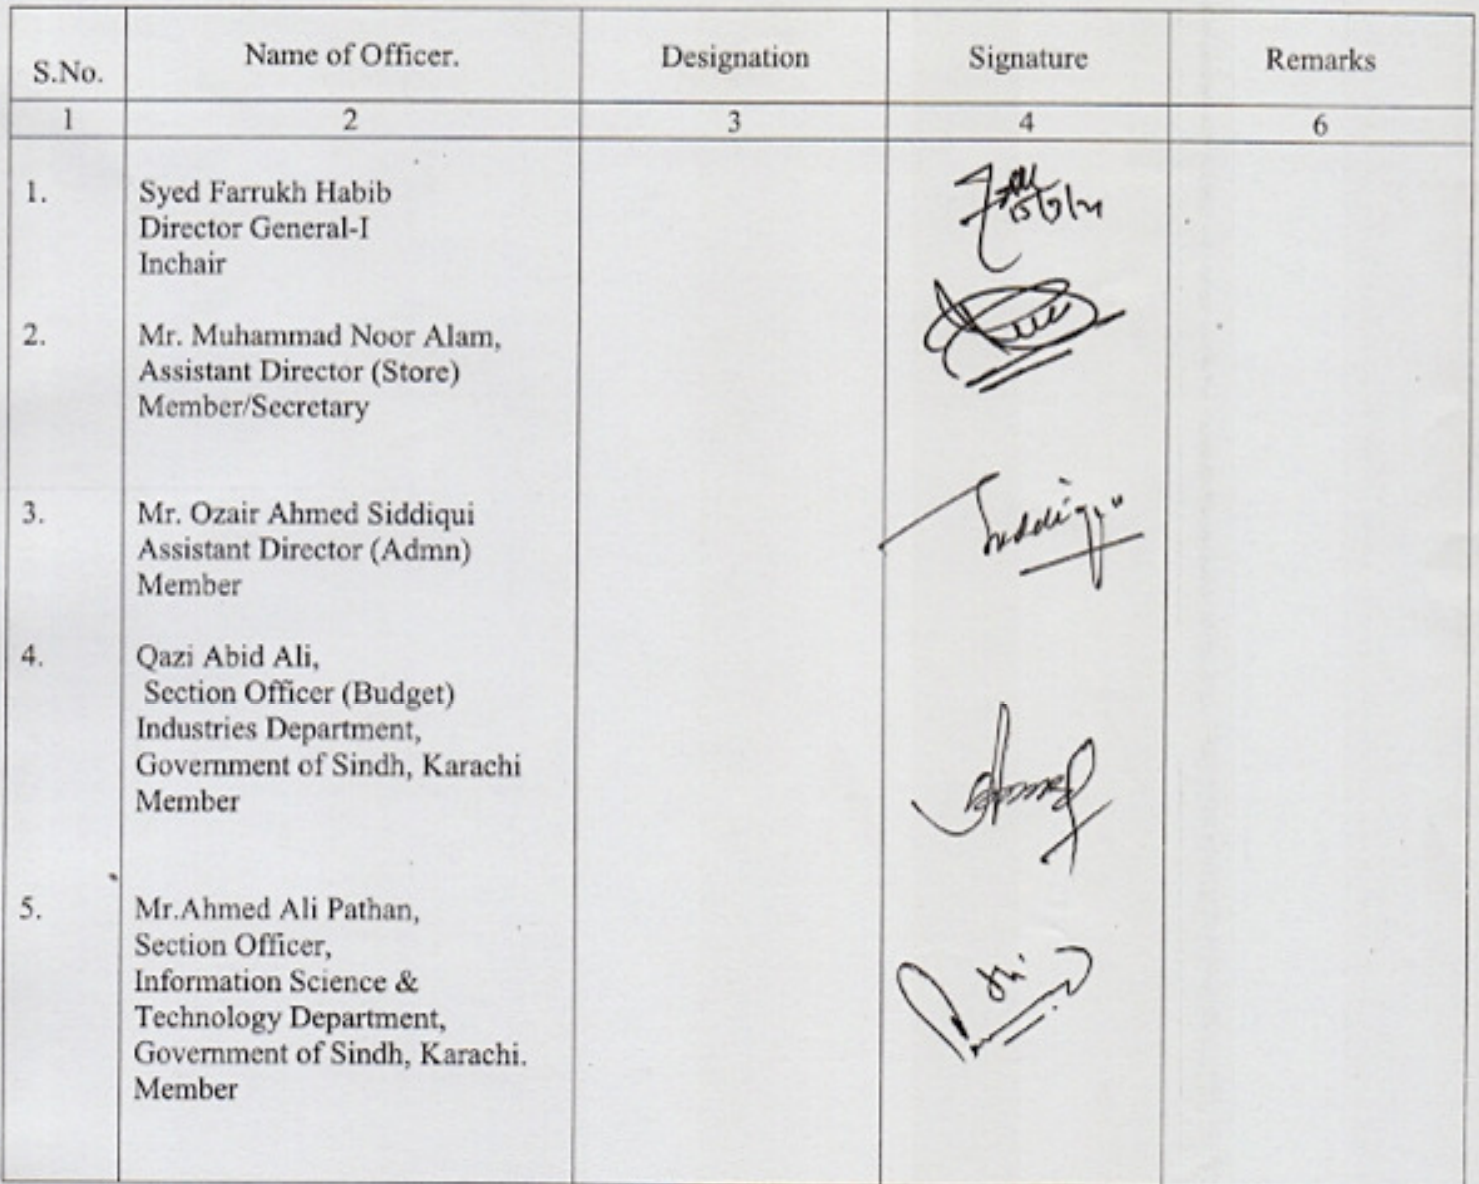 S.No. Name of Officer. Designation Signature Remarks
1 2 3 4 6
1. Syed Farrukh Habib
Director General-I
Inchair
2. Mr. Muhammad Noor Alam,
Assistant Director (Store)
Member/Secretary
3. Mr. Ozair Ahmed Siddiqui
Assistant Director (Admn)
Member
4. Qazi Abid Ali,
Section Officer (Budget)
Industries Department,
Government of Sindh, Karachi
Member
5. Mr.Ahmed Ali Pathan,
Section Officer,
Information Science &
Technology Department,
Government of Sindh, Karachi.
Member